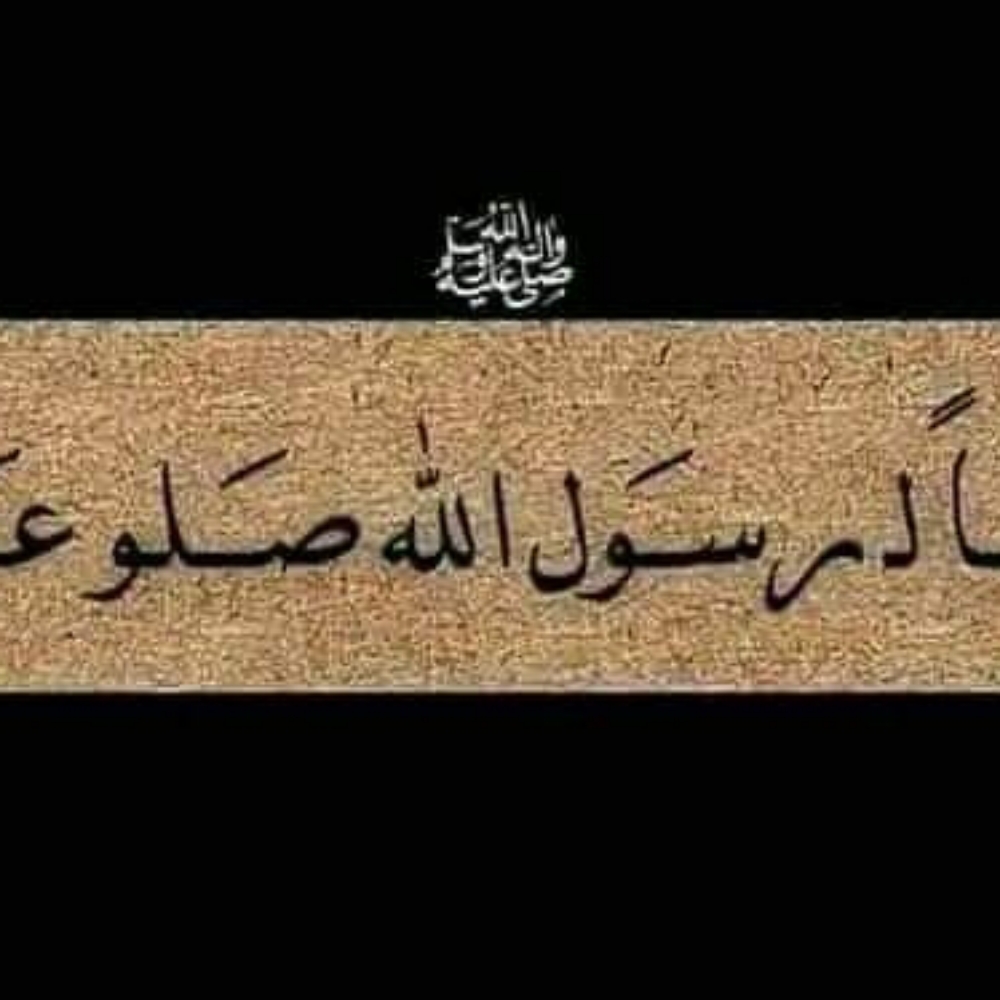 صلى الله عليه واله وسلم
ـاً لـ رسـَول الله صـَلـو عـَ